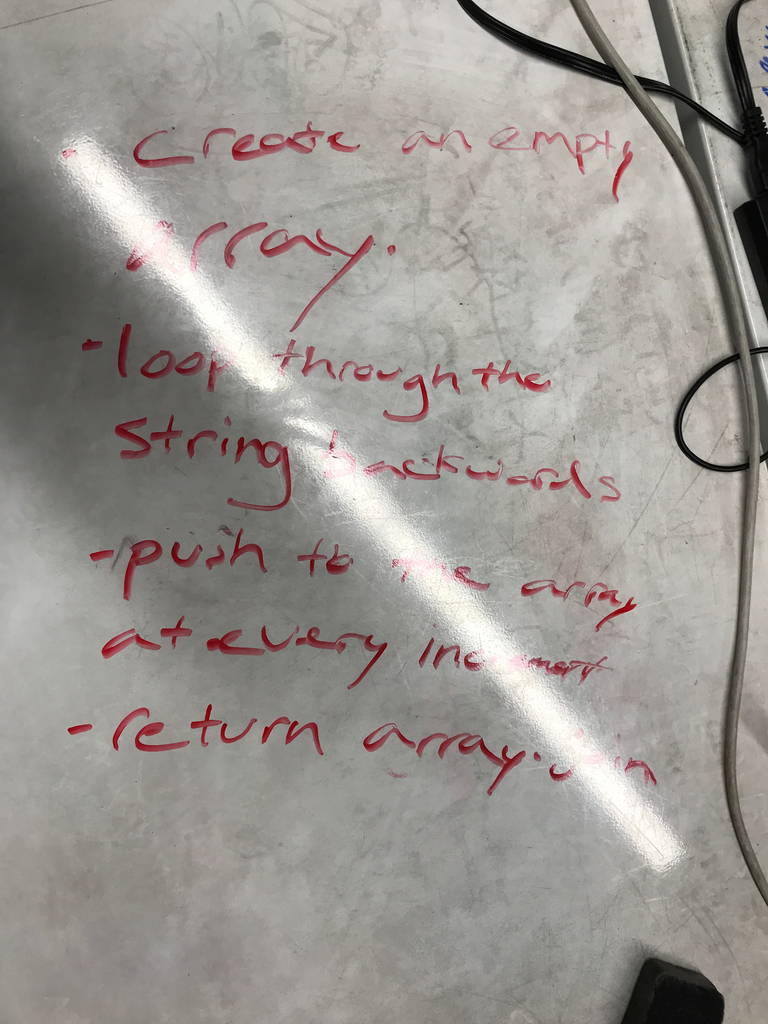 - Create an empty
array.
- loop through the
String backwards
- push to the array
at every increment
- return array.join